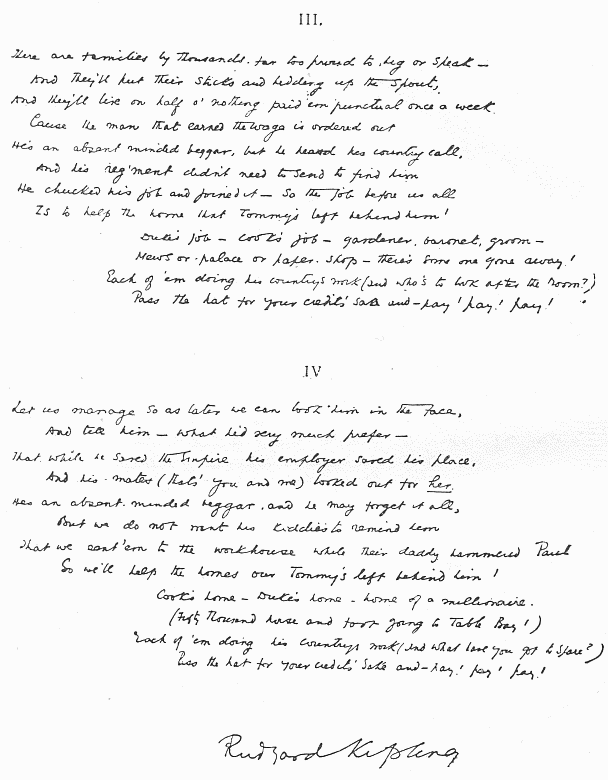 III.
There are families by thousands, far too proud to beg or speak –
And they'll put their sticks and bedding up the spout,
And they'll live on half o' nothing paid 'em punctual once a week
Cause the man that earned the wage is ordered out
He's an absent minded beggar, but he heard his country call,
And his reg'ment didn't need to send to find him
He chucked his job and joined it – So the job before us all
Is to help the home that Tommy's left behind him!
Duke's job – cook's job – gardener, baronet, groom –
Mews or palace or paper-shop – there's some one gone away!
Each of 'em doing his country's work (and who's to look after the room?)
Pass the hat for your credit's sake and – pay! pay! pay!
IV
Let us manage so as later we can look him in the face,
And tell him – what he'd very much prefer –
That while he saved the Empire his employer saved his place,
And his mates (that's you and me) looked out for her.
He's an absent-minded beggar, and he may forget it all,
But we do not want his kiddies to remind him
That we sent 'em to the workhouse while their daddy hammered Paul
So we'll help the homes our Tommy's left behind him!
Cook's home – Duke's home – home of a millionaire.
(Fifty thousand horse and foot going to Table Bay!)
Each of 'em doing his country's work (and what have you got to spare?)
Pass the hat for your credit's sake and – pay! pay! pay!
Rudyard Kipling